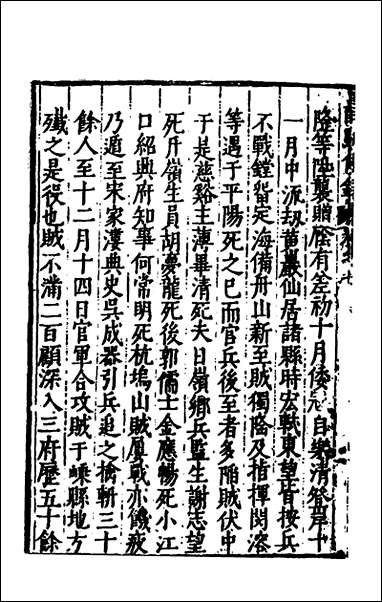 隆等陞襲贈廕有差初十月倭𡨥自樂清登岸十
一月中流刼黄巖仙居諸縣時宏戰東望皆按兵
不戰鏜督定海備舟山新至賊獨隆及指揮閔溶
等遇于平陽死之已而官兵後至者多陷賊伏中
于是慈谿主薄畢清死夫日嶺鄉兵監生謝志望
死斤嶺生員胡夢龍死後郭儒士金應暢死小江
口紹興府知事何常明死杭塢山賊屢戰亦饑疲
乃遁至宋家漊典史吳成器引兵追之擒斬三十
餘人至十二月十四日官軍合攻賊于嵊縣地方
殲之是役也賊不滿二百顧深入三府歷五十餘